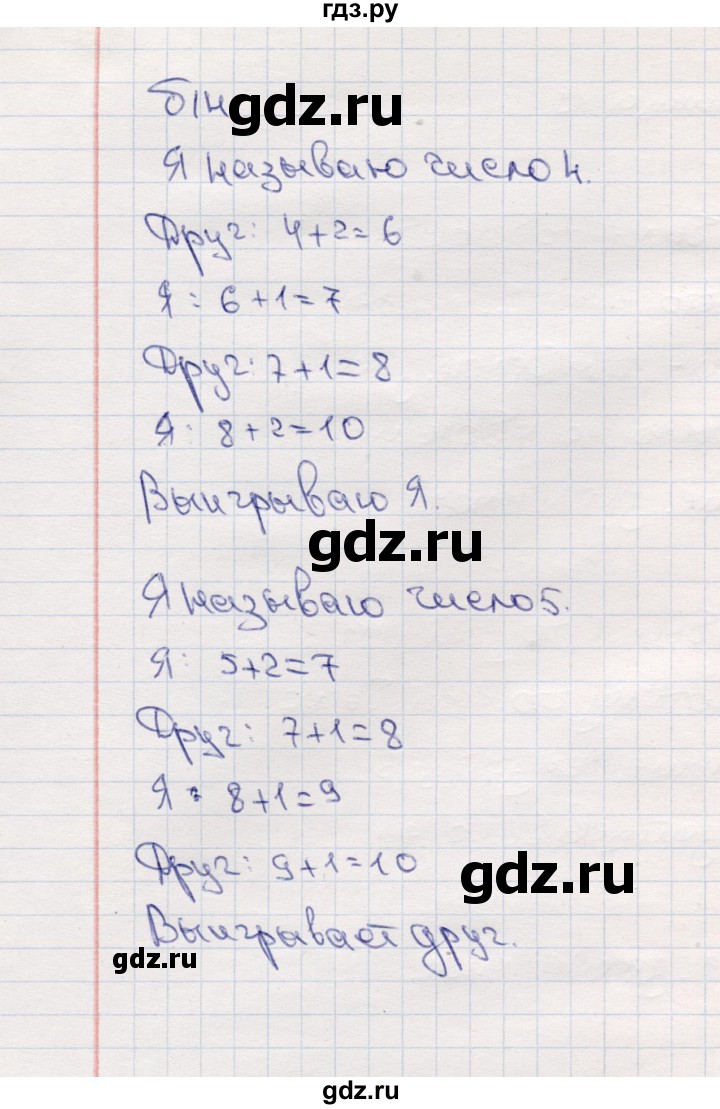 гдз.ру
gdz.ru
Я называю число 4.
Друг: 4+2=6
Я: 6+1=7
Друг: 7+1=8
Я: 8+2=10
Выигрываю Я.
gdz.ru
Я называю число 5.
Я: 5+2=7
Друг: 7+1=8
Я: 8+1=9
Друг: 9+1=10
gdz.ru
Выигрывает друг.
gdz.ru
gdz.ru